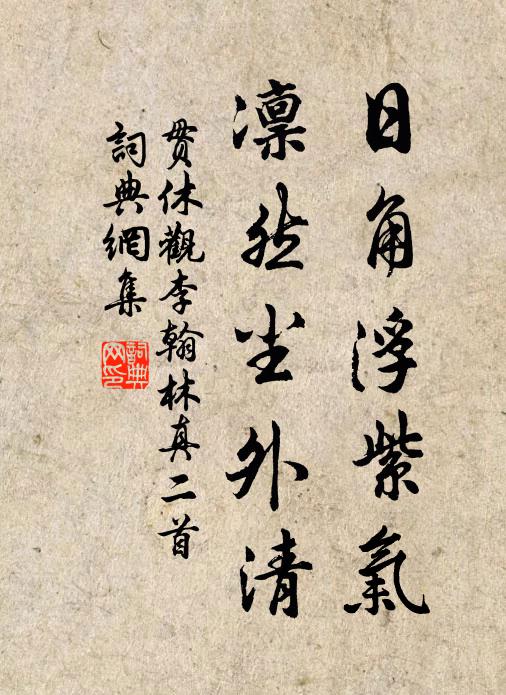 日角浮紫氣
凛然尘外清
贯休觀李翰林真二首
詞典網集
詞典
网印